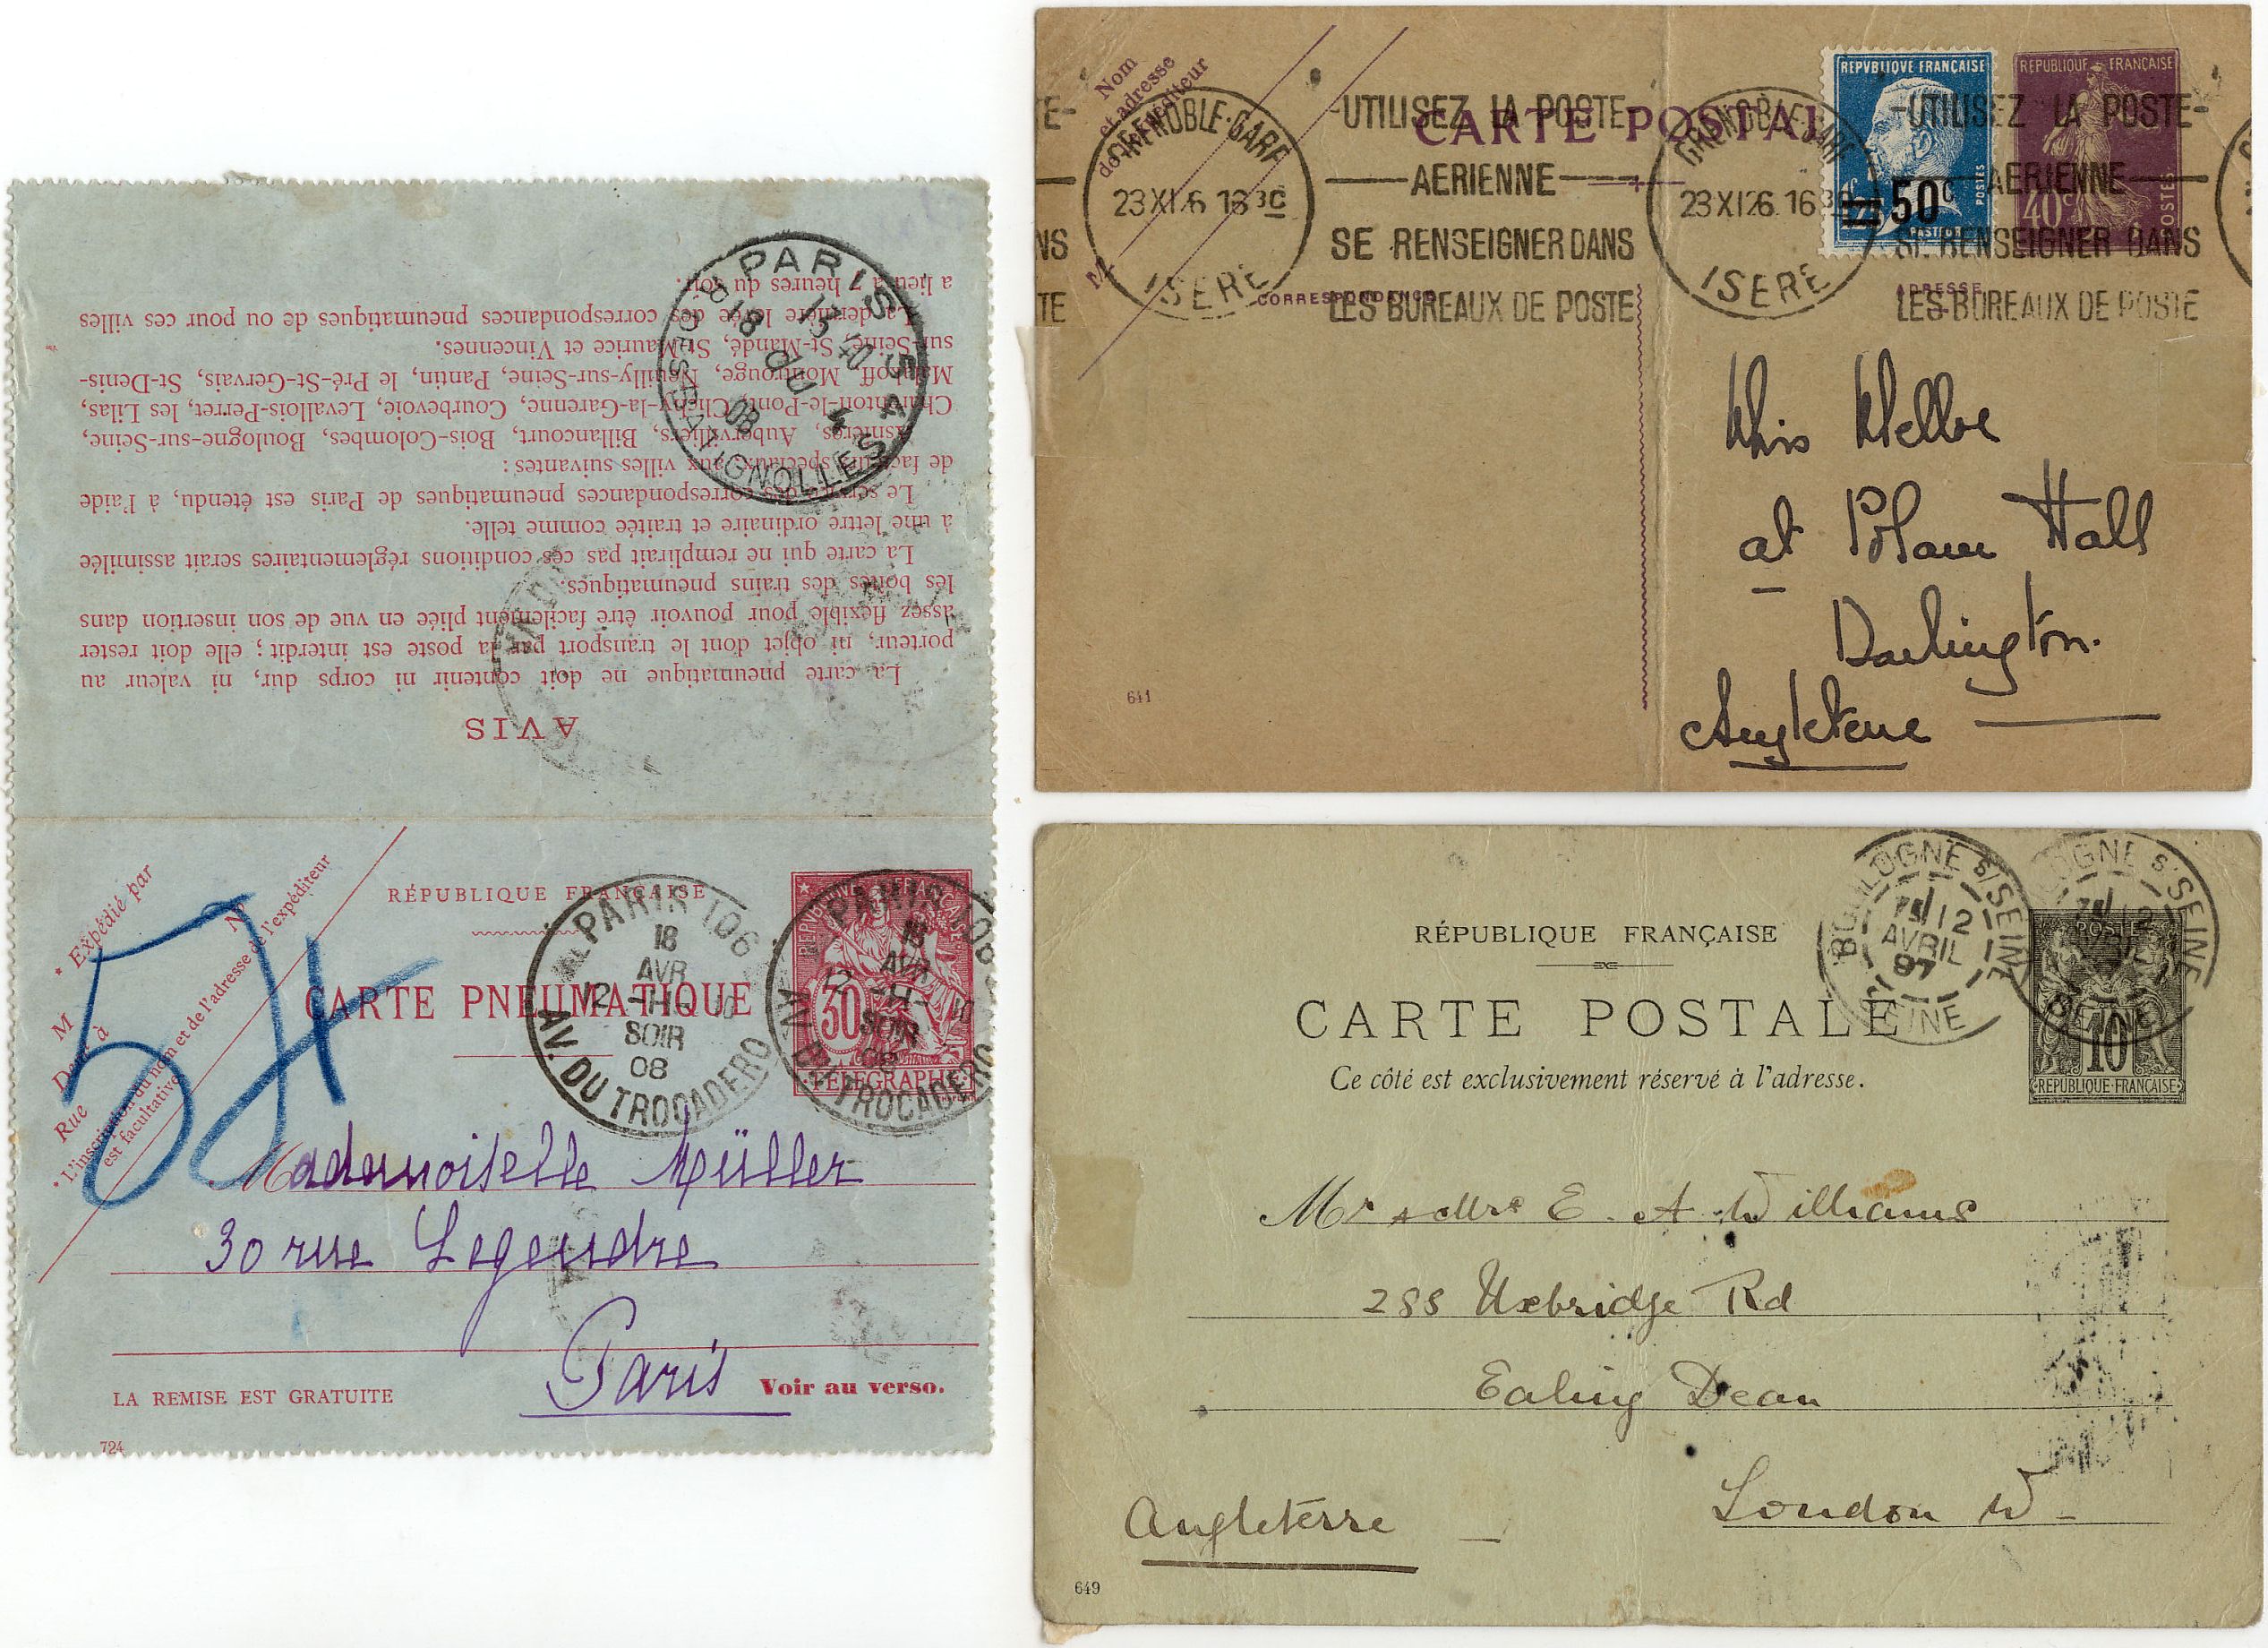 AVIS
La carte pneumatique ne doit contenir ni corps dur, ni valeur au
porteur, ni objet dont le transport par la poste est interdit; elle doit rester
assez flexible pour pouvoir être facilement pliée en vue de son insertion dans
les boîtes des trains pneumatiques.
La carte qui ne remplirait pas ces conditions réglementaires serait assimilée
à une lettre ordinaire et traitée comme telle.
Le service des correspondances pneumatiques de Paris est étendu, à l'aide
de facteurs spéciaux, aux villes suivantes:
Asnières, Aubervilliers, Billancourt, Bois-Colombes, Boulogne-sur-Seine,
Charenton-le-Pont, Clichy-la-Garenne, Courbevoie, Levallois-Perret, les Lilas,
Malakoff, Montrouge, Neuilly-sur-Seine, Pantin, le Pré-St-Gervais, St-Denis-
sur-Seine, St-Mandé, St-Maurice et Vincennes.
La dernière levée des correspondances pneumatiques de ou pour ces villes
a lieu à 7 heures du soir.
PARIS
18
08
R. DES BATIGNOLLES
* Expédié par
M
Dem^t à
Rue
N°
* L'inscription du nom et de l'adresse de l'expéditeur
est facultative.
RÉPUBLIQUE FRANÇAISE
CARTE PNEUMATIQUE
PARIS 106
18
AVR
12 -H- 10
SOIR
08
AV. DU TROCADERO
PARIS 106
18
AVR
12 -H- 10
SOIR
08
AV. DU TROCADERO
30
TELEGRAPHE
Mademoiselle Müller
30 rue Legendre
Paris
Voir au verso.
LA REMISE EST GRATUITE
724
Nom
et adresse
de l'Expéditeur
M
CARTE POSTALE
GRENOBLE-GARE
23 XI 26 16 30
ISERE
-UTILISEZ LA POSTE-
AERIENNE
SE RENSEIGNER DANS
LES BUREAUX DE POSTE
GRENOBLE-GARE
23 XI 26 16 30
ISERE
-UTILISEZ LA POSTE-
AERIENNE
SE RENSEIGNER DANS
LES BUREAUX DE POSTE
REPVBLIQVE FRANÇAISE
50c
POSTES
PASTEUR
REPUBLIQUE FRANÇAISE
40c
POSTES
CORRESPONDANCE
ADRESSE
at Polam Hall
Darlington.
Angleterre
641
RÉPUBLIQUE FRANÇAISE
CARTE POSTALE
Ce côté est exclusivement réservé à l'adresse.
BOULOGNE S/SEINE
12
AVRIL
97
SEINE
BOULOGNE S/SEINE
12
AVRIL
SEINE
POSTES
10
REPUBLIQUE FRANÇAISE
Mr & Mrs E. A. Williams
288 Uxbridge Rd
Ealing Dean
London W
Angleterre
649